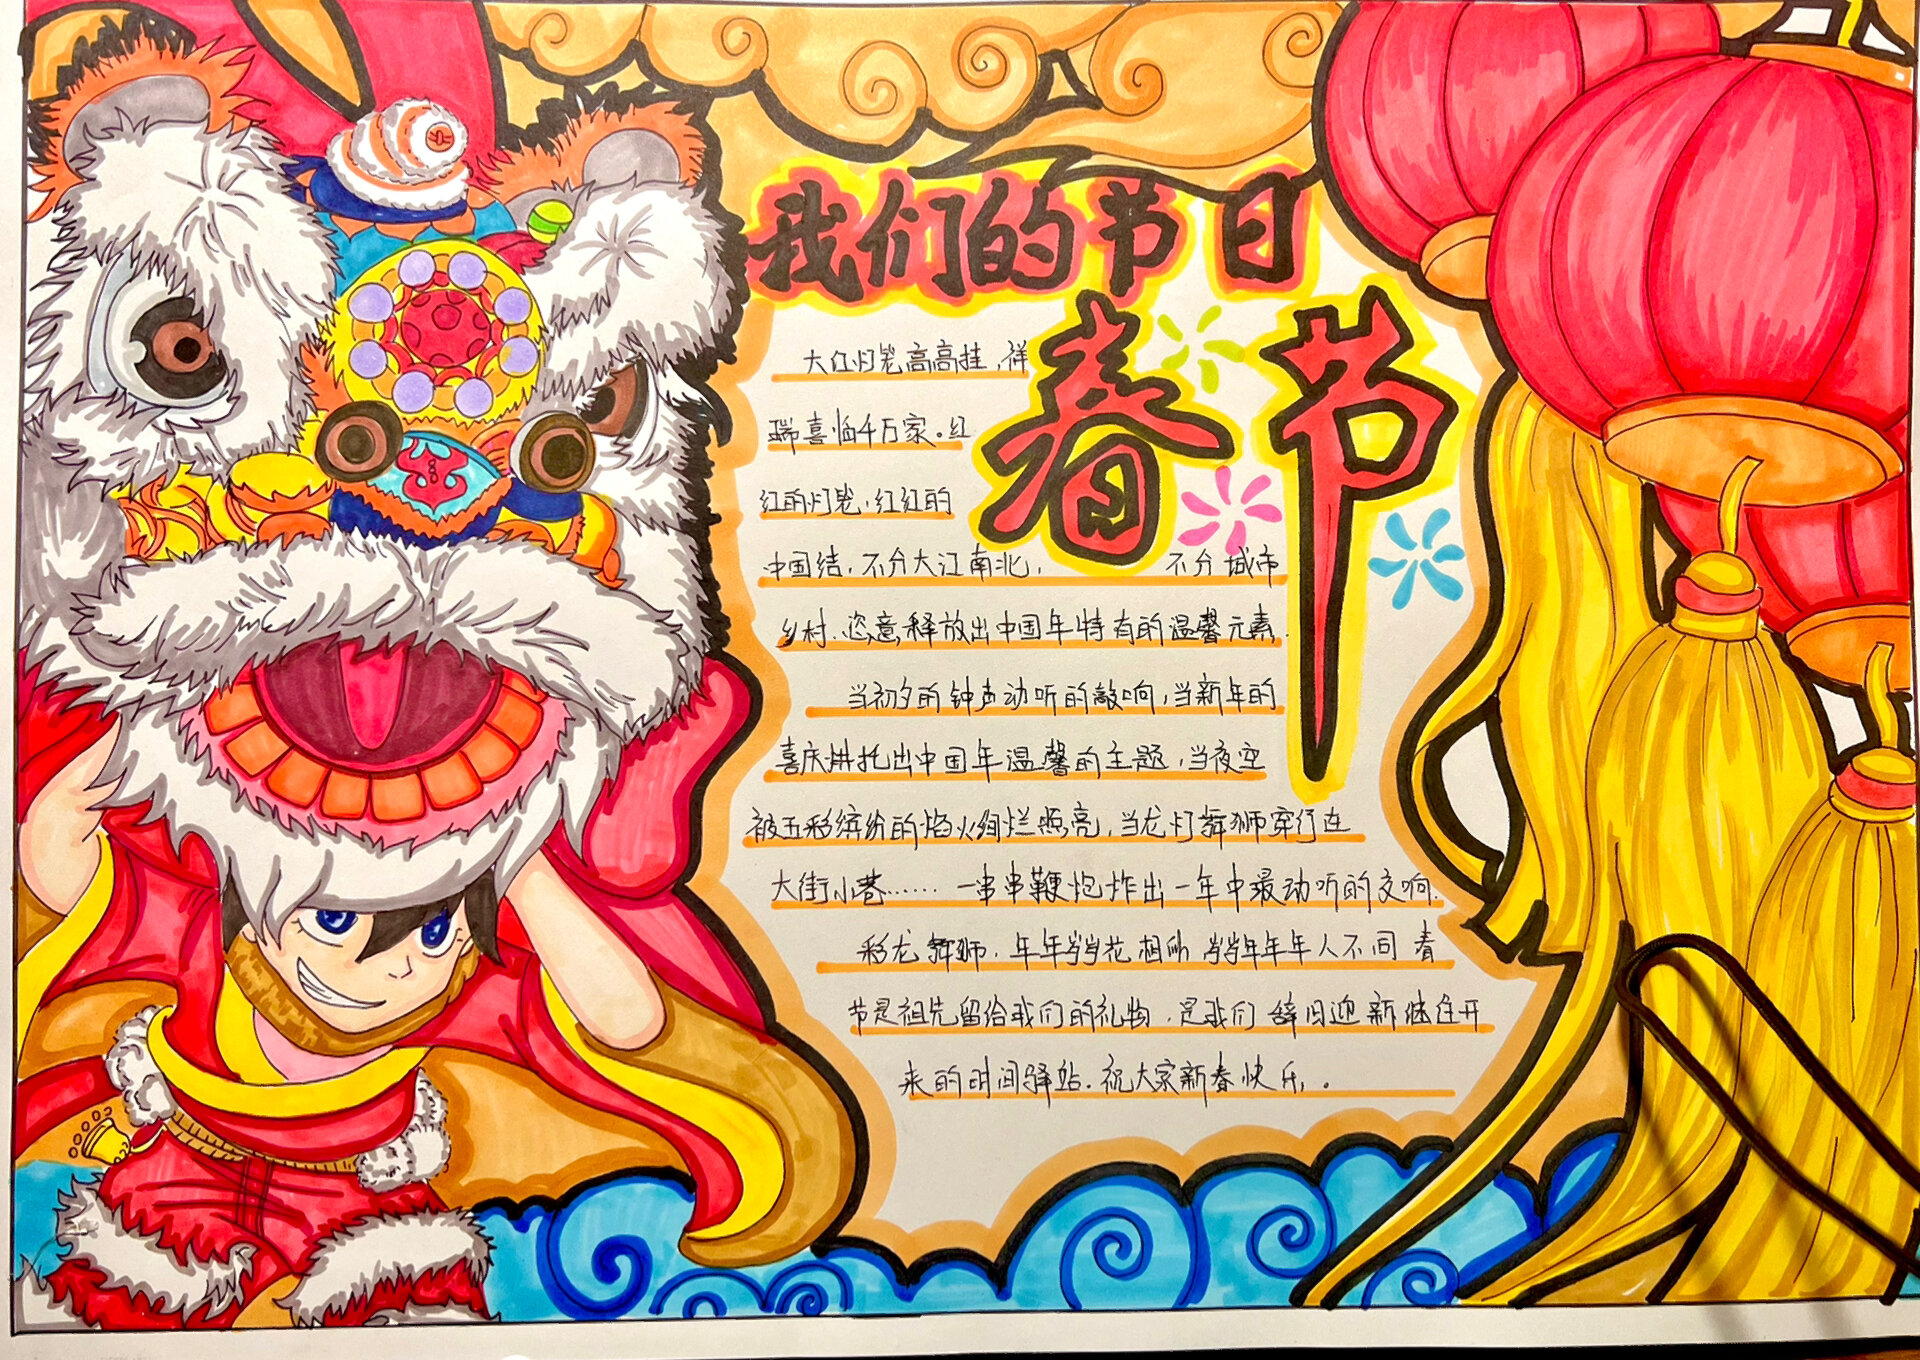 我们的节日
春节
大红灯笼高高挂，祥
瑞喜临千万家。红
红的灯笼，红红的
中国结，不分大江南北，不分城市
乡村，恣意释放出中国年特有的温馨元素。
当初夕的钟声动听的敲响，当新年的
喜庆拱托出中国年温馨的主题，当夜空
被五彩缤纷的焰火绚烂照亮，当龙灯舞狮穿行在
大街小巷……一串串鞭炮炸出一年中最动听的交响.
彩龙舞狮，年年岁岁花相似 岁岁年年人不同 春
节是祖先留给我们的礼物，是我们辞旧迎新继往开
来的时间驿站.祝大家新春快乐。